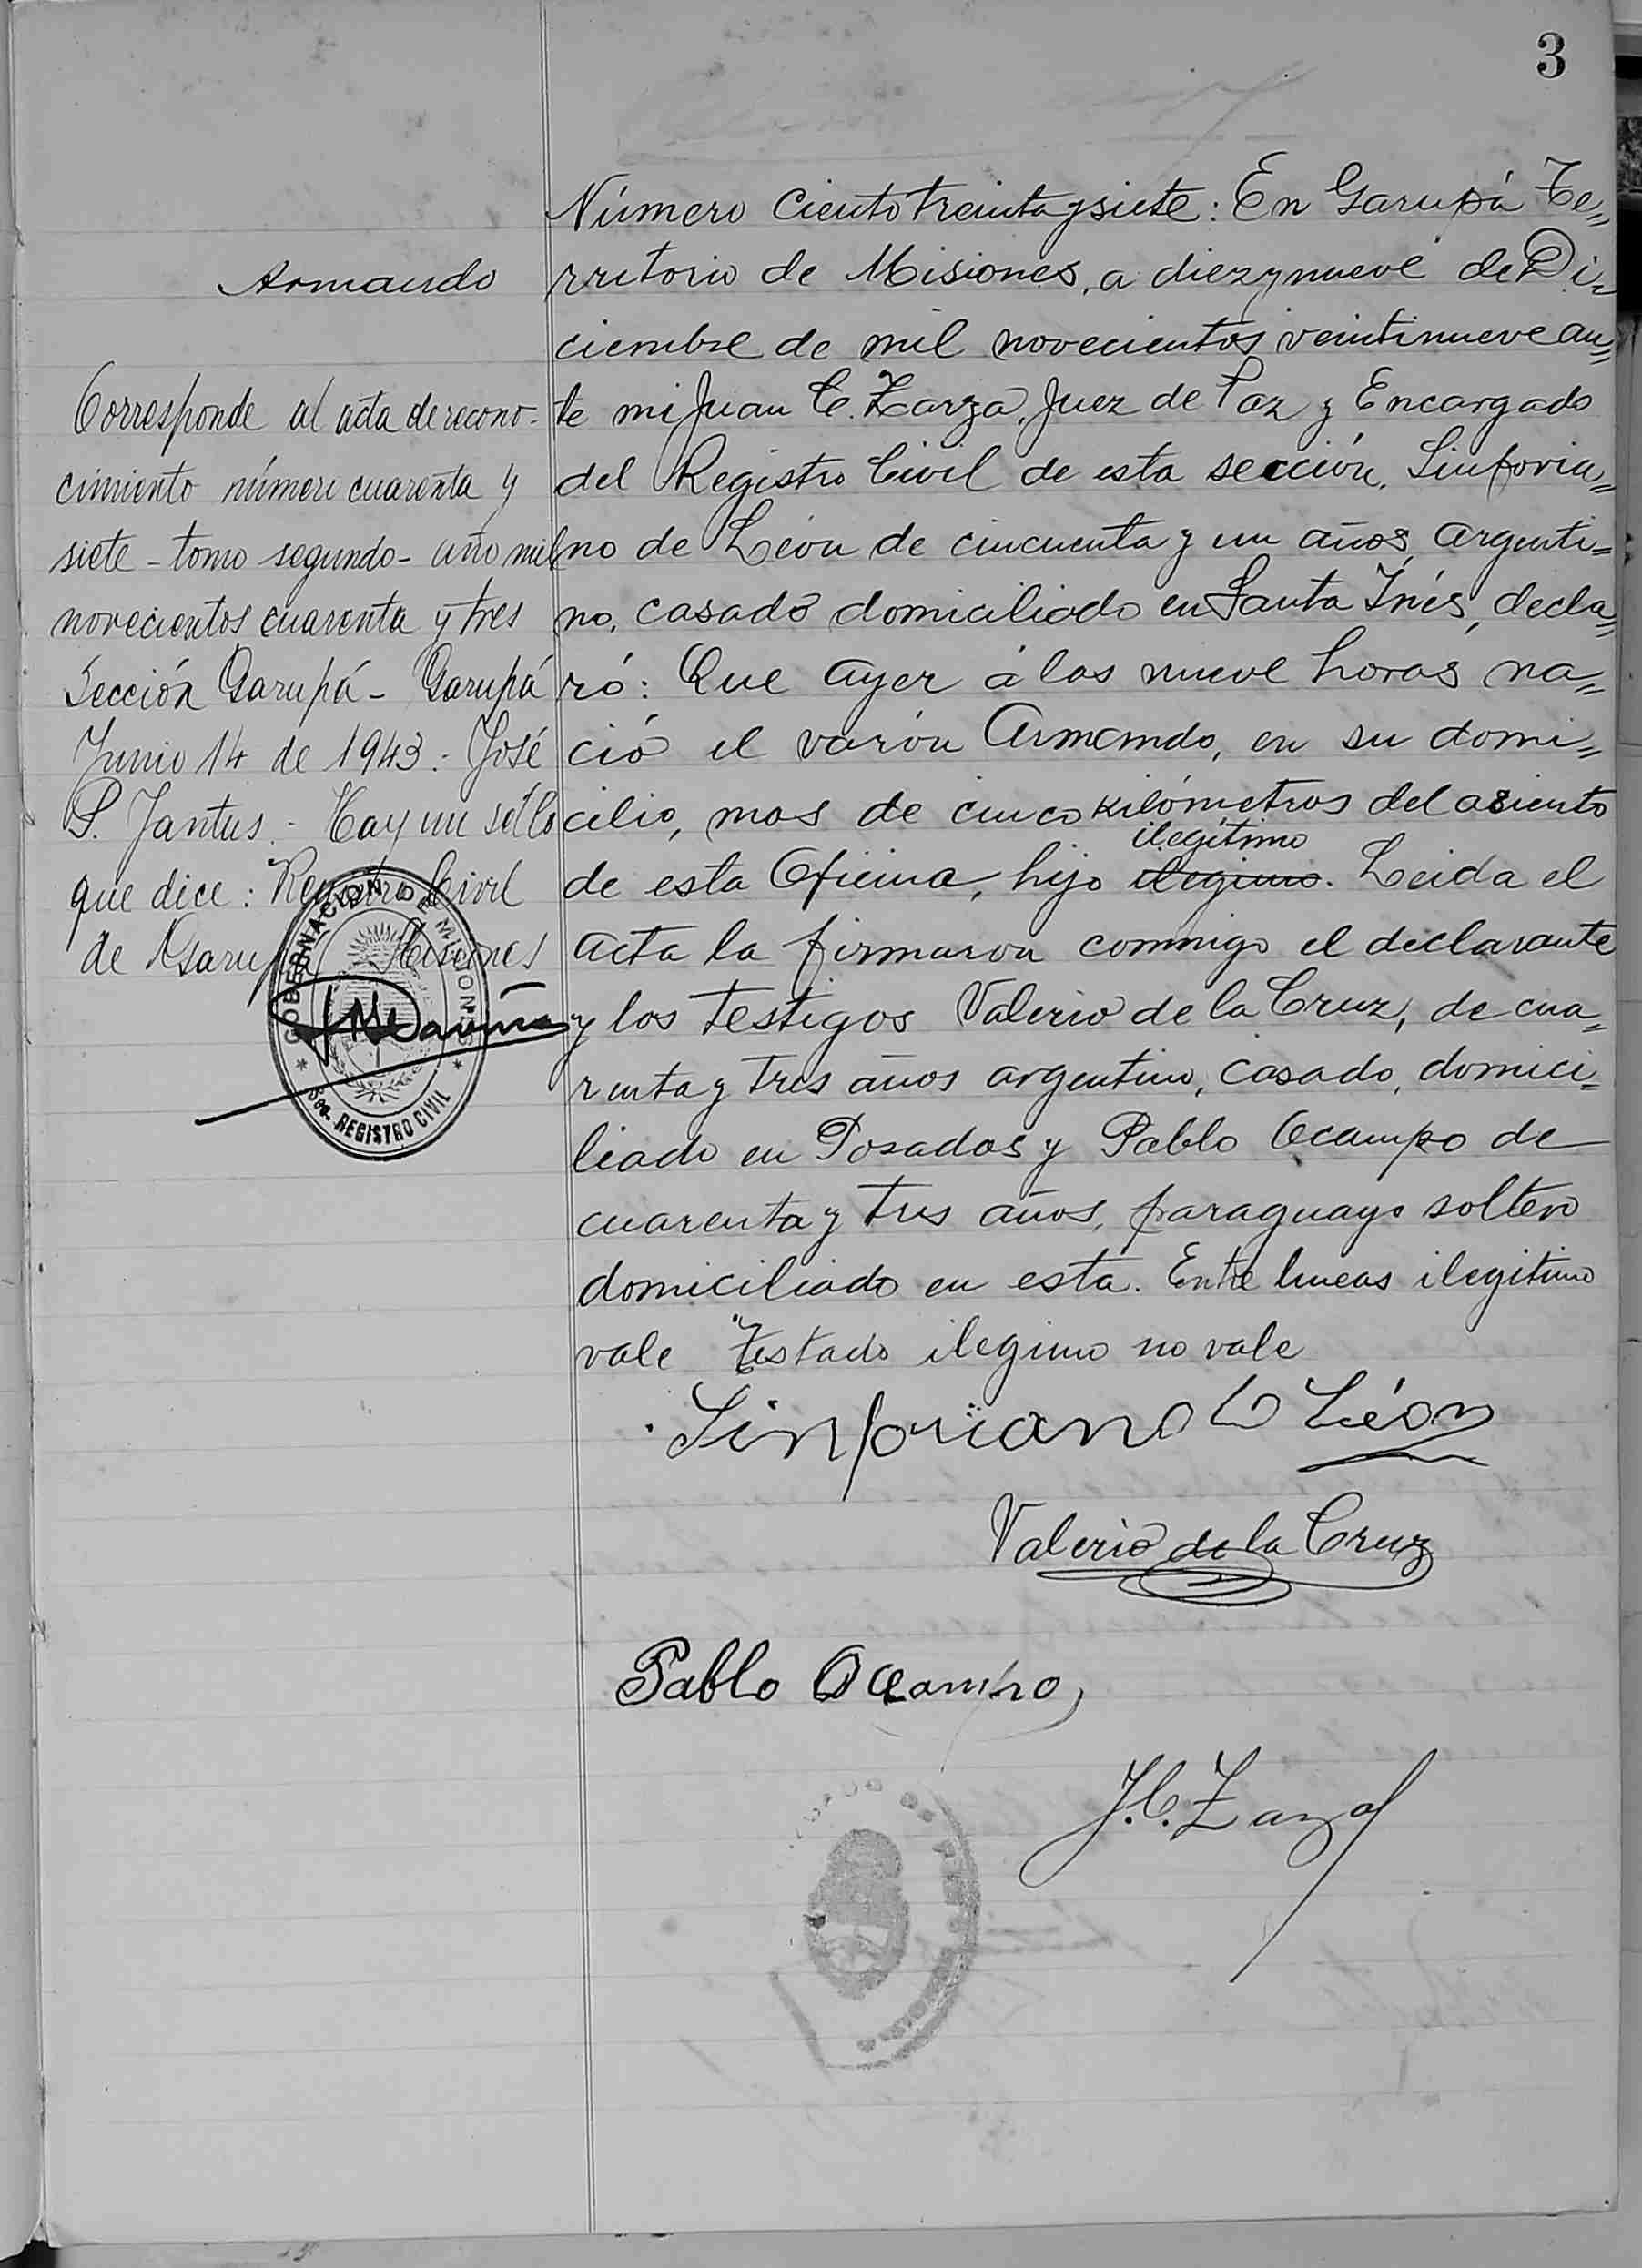 3
Armando
Corresponde al acta de recono-
cimiento número cuarenta y
siete - tomo segundo - año mil
novecientos cuarenta y tres
Sección Garupá - Garupá
Junio 14 de 1943 :- José
S. Jantus - Hay un sello
que dice : Registro Civil
de Garupá Misiones
GOBERNACION DE MISIONES
Sec. REGISTRO CIVIL
Número Ciento treinta y siete : En Garupá Te=
rritorio de Misiones, a diez y nueve de Di=
ciembre de mil novecientos veintinueve an=
te mi Juan C. Zarza, Juez de Paz y Encargado
del Registro Civil de esta sección, Sinforia=
no de León de cincuenta y un años, argenti=
no, casado domiciliado en Santa Inés, decla=
ró : Que ayer á las nueve horas na=
ció el varón Armando, en su domi=
cilio, mas de cinco kilómetros del asiento
ilegitimo
de esta Oficina, hijo ilegimo. Leida el
acta la firmaron conmigo el declarante
y los testigos Valerio de la Cruz, de cua=
renta y tres años argentino, casado, domici=
liado en Posadas y Pablo Ocampo de
cuarenta y tres años, paraguayo soltero
domiciliado en esta. Entre lineas ilegitimo
vale Testado ilegimo no vale
Sinforiano D León
Valerio de la Cruz
Pablo Ocampo
J. C. Zarza